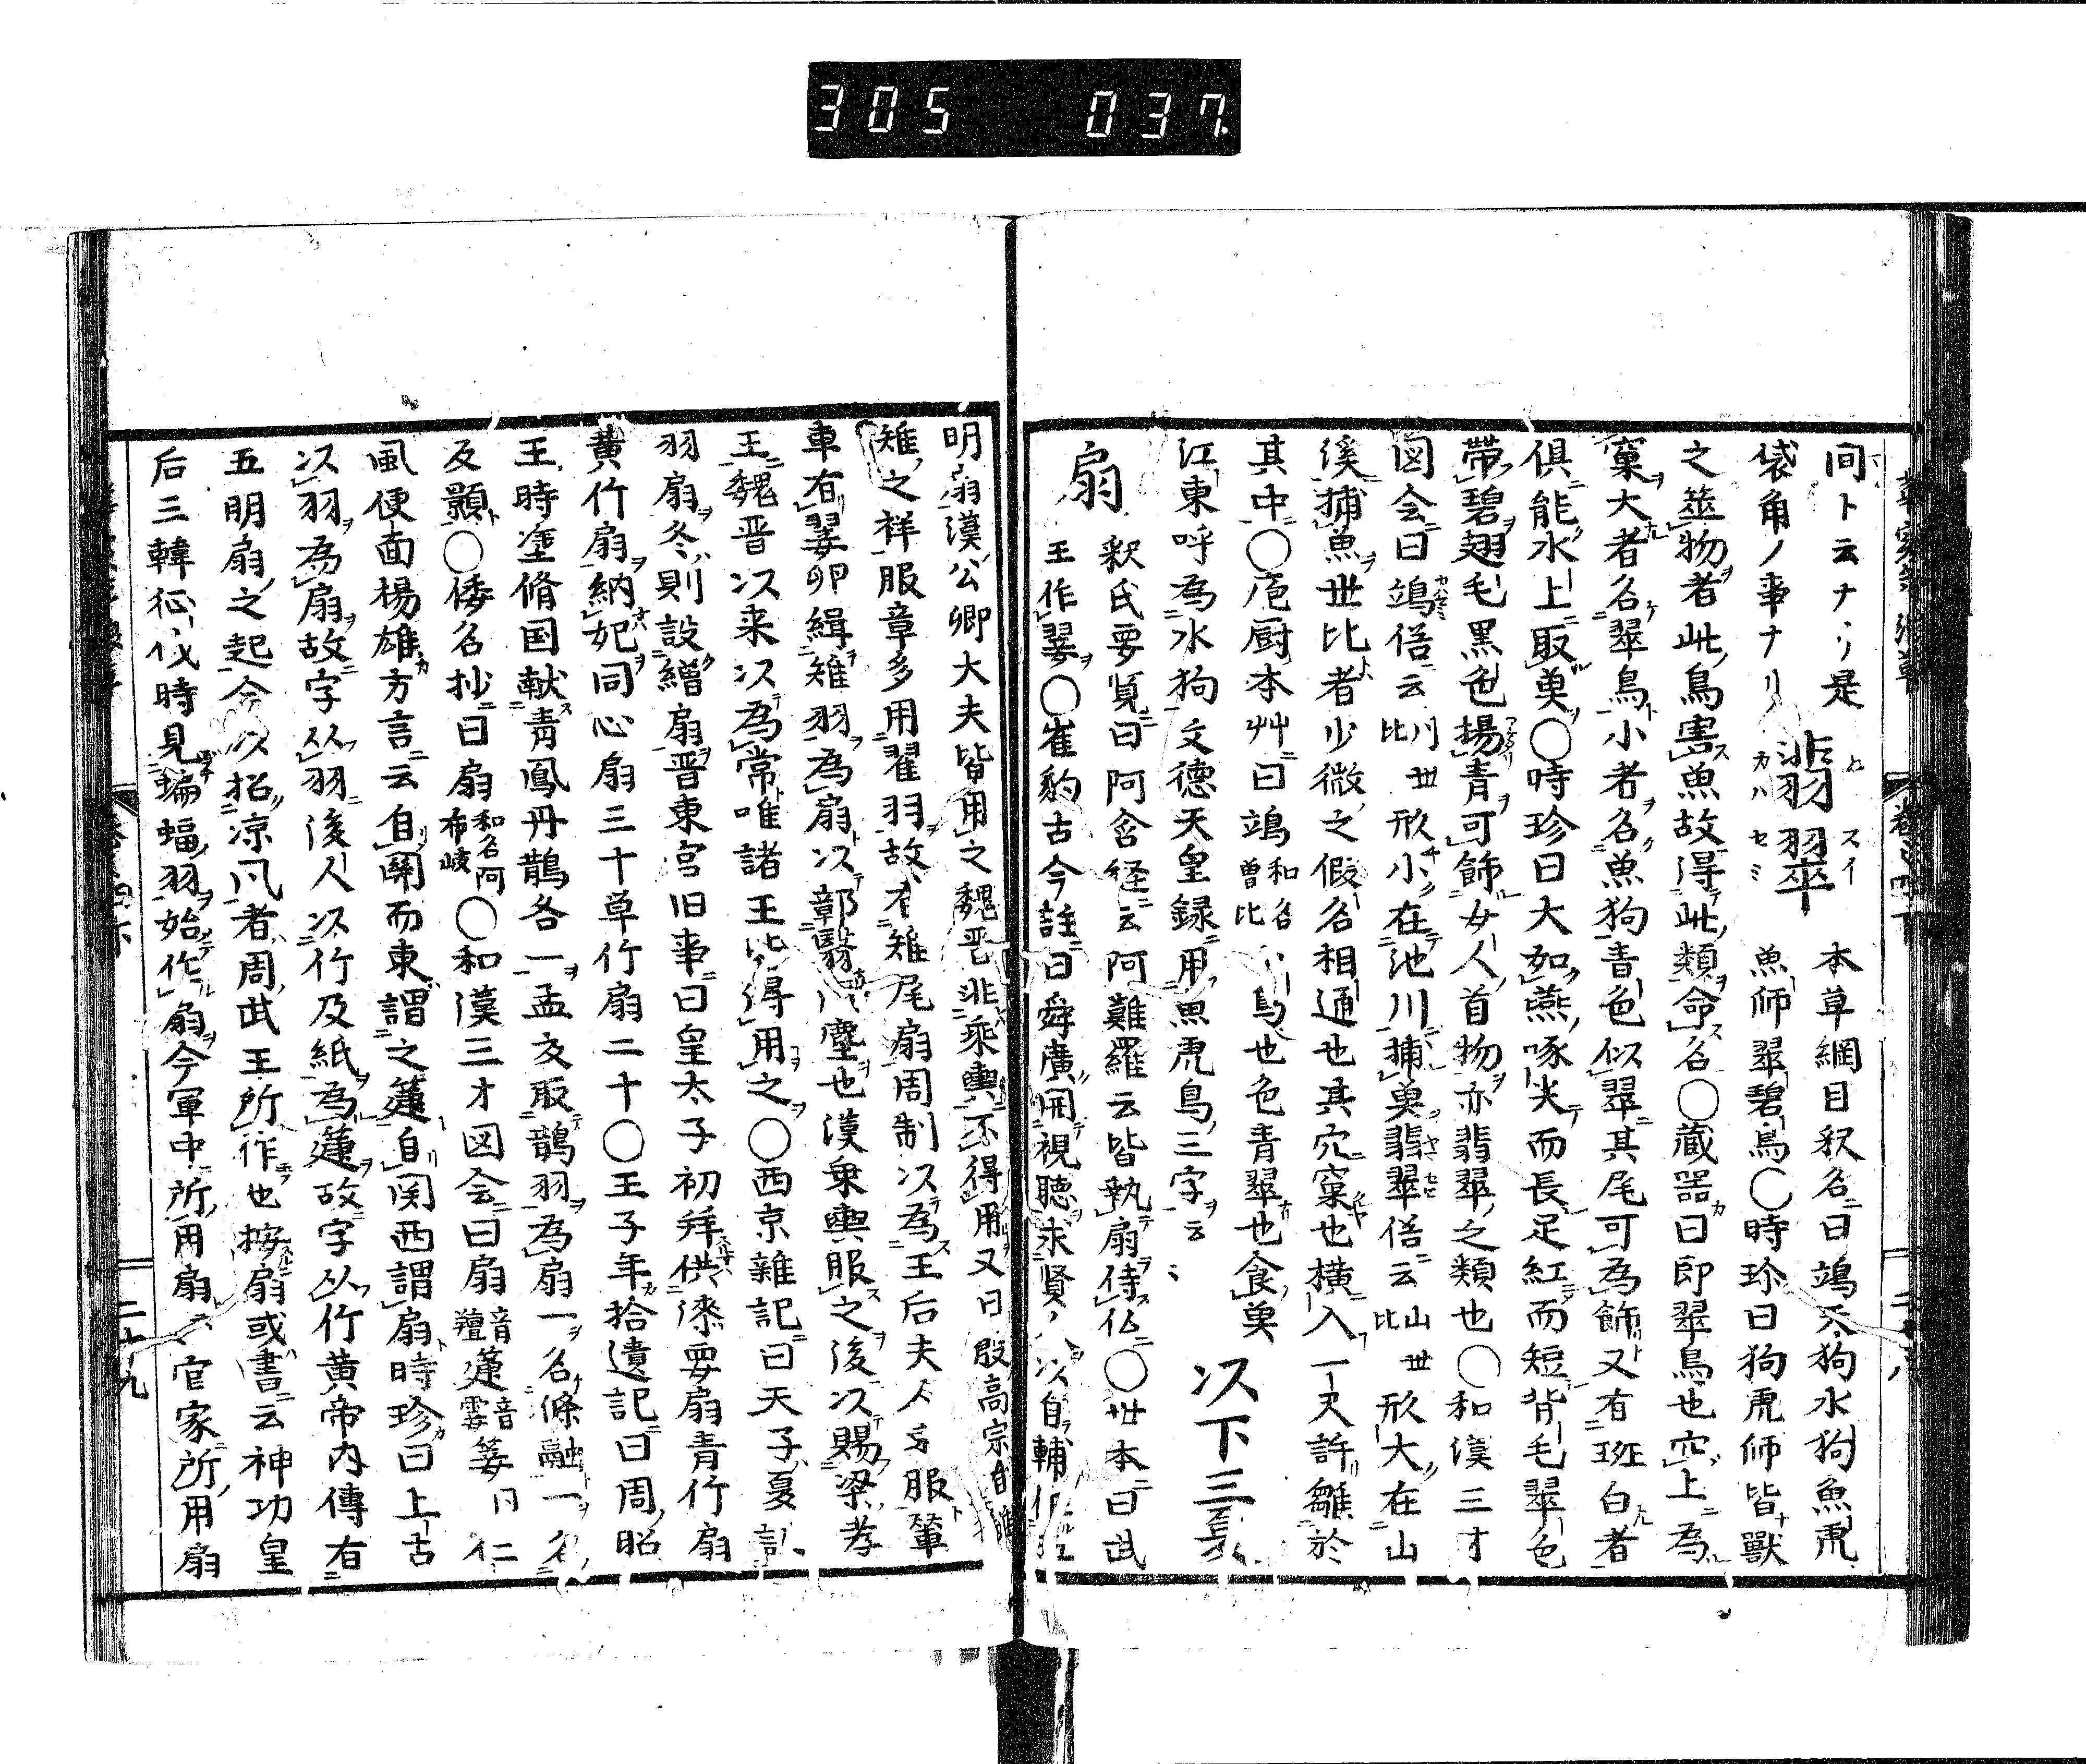 305 037
間ト云ナリ是
袋角ノ事ナリ
翡翠
本草綱目釈名曰鴗天狗水狗魚虎
魚師翠碧鳥〇時珍曰狗虎師皆獣
之噬物者此鳥害魚故得此類命名〇蔵器曰即翠鳥也穴上為
窠大者名翠鳥小者名魚狗青色似翠其尾可為飾又有斑白者
俱能水上取魚〇時珍曰大如燕啄尖而長足紅而短背毛翠色
帯碧翅毛黒色揚青可飾女人首物亦翡翠之類也〇和漢三才
図会曰鴗俗云川世比形小在池川捕魚翡翠俗云山世比形大在山
溪捕魚世比者少微之仮名相通也其穴窠也横入一尺許雛於
其中〇庖厨本艸曰鴗和名曽比小鳥也色青翠也食魚
江東呼為水狗文徳天皇録用魚虎鳥三字云々
以下三夏
扇
釈氏要覧曰阿含経云阿難羅云皆執扇侍仏〇世本曰武
王作翣〇崔豹古今註曰舜広開視聴求賢人以自輔作五
明扇漢公卿大夫皆用之魏晋非乗輿不得用又曰殷高宗有雊
雉之祥服章多用翟羽故有雉尾扇周制以為王后夫人車服輦
車有翣即緝雉羽為扇以鄣翳風塵也漢乗輿服之後以賜梁孝
王魏晋以来以為常唯諸王此得用之〇西京雑記曰天子夏設
羽扇冬則設繒扇晋東宮旧事曰皇太子初拝供漆要扇青竹扇
黄竹扇納妃同心扇三十単竹扇二十〇王子年拾遺記曰周昭
王時塗脩国献青鳳丹鵲各一孟夏取鵲羽為扇一名條融一名
仄影〇倭名抄曰扇和名阿布岐〇和漢三才図会曰扇音羶箑音霎翣同仁
風便面楊雄方言云自関而東謂之箑自関西謂扇時珍曰上古
以羽為扇故字从羽後人以竹及紙為箑故字从竹黄帝内伝有
五明扇之起今以招涼風者周武王所作也按扇或書云神功皇
后三韓征伐時見蝙蝠羽始作扇今軍中所用扇官家所用扇
二十九